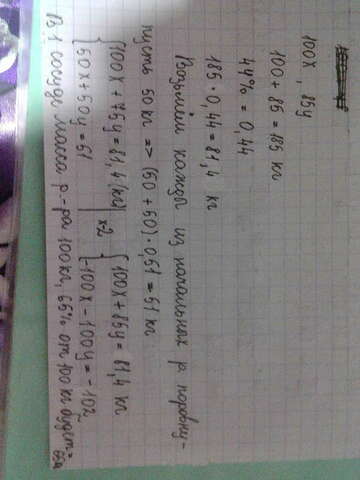 100x, 85y
100 + 85 = 185 кг
44% = 0,44
185 · 0,44 = 81,4 кг
Возьмём кажды из начальных р. поровну -
пусть 50 кг => (50 + 50) · 0,51 = 51 кг
{100x + 85y = 81,4 (кг) {100x + 85y = 81,4 кг
{50x + 50y = 51 |x-2 {-100x - 100y = -102
В 1 сосуде масса р-ра 100 кг, 65% от 100 кг будет =